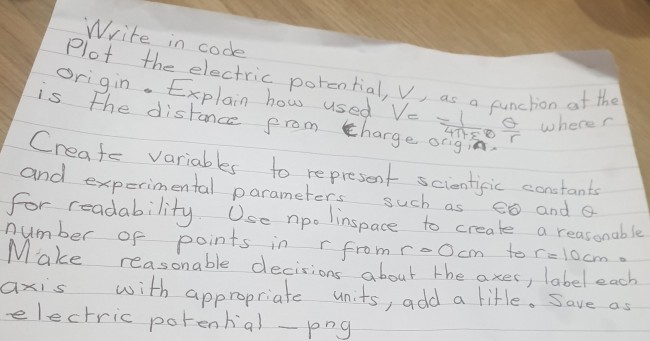 Write in code
Plot the electric potential, V, as a function of the
origin. Explain how used V= = 1/4πε0 Q/r where r
is the distance from charge origin.
Create variables to represent scientific constants
and experimental parameters such as ε0 and Q
for readability. Use npo linspace to create a reasonable
number of points in r from r=0cm to r=10cm.
Make reasonable decisions about the axes, label each
axis with appropriate units, add a title. Save as
electric potential - png